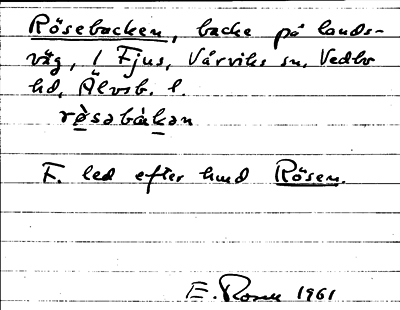 Rösebacken, backe på lands-
väg, i Fjus, Vårviks sn, Vedbo
hd, Älvsb. l.
rø̀sabákan
F. led efter hmd Rösen.
E. Rosen 1961